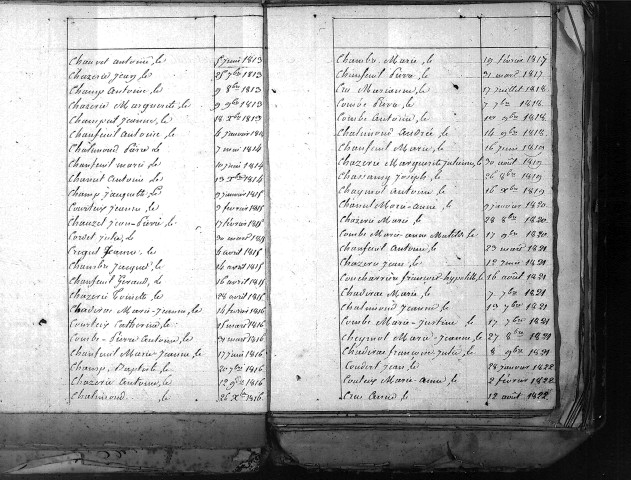 Chauvet antoine, le 5 juin 1813
Chazerie jean, le 25 7bre 1813
Champ antoine, le 9 8bre 1813
Chazerie Marguerite, le 9 9bre 1813
jeanne, le 18 Xbre 1813
Chanfeuil antoine, le 4 janvier 1814
Chalimond Pierre, le 7 mai 1814
Chanfeuil marie, le 10 juin 1814
Antoine, le 13 Xbre 1814
Champ jacquette, le janvier 1815
Couteix jeanne, le 9 février 1815
Chauzel jean-Pierre, le 17 février 1815
Cordet julie, le 30 mars 1815
jeanne, le 6 avril 1815
Chambe jacques, le 14 avril 1815
Chanfeuil Géraud, le 16 avril 1815
Chazerie Toinette, le 28 avril 1815
Chaderac Marie-jeanne, le 14 février 1816
Couteix Catherine, le mars 1816
Combe-Pierre Antoine, le 31 mars 1816
Chanfeuil Marie-jeanne, le 17 juin 1816
Champ, Baptiste, le 20 7bre 1816
Chazerie Antoine, le 12 9bre 1816
Chalimond, le 26 Xbre 1816
Chambe Marie, le 19 février 1817
Chanfeuil Pierre, le 31 mars 1817
Cru Marianne, le 17 juillet 1818
Combe Pierre, le 7 7bre 1818
Combe Antoine, le 9bre 1818
Chalimond André, le 16 9bre 1818
Chanfeuil Marie, le 16 juin 1819
Chazerie Marguerite julienne, le 30 août 1819
Chassang joseph, le 26 8bre 1819
Antoine, le 16 Xbre 1819
Marie-anne, le 9 janvier 1820
Chazerie Marie, le 28 8bre 1820
Combe Marie anne Mathilde, le 17 9bre 1820
Chanfeuil Antoine, le 23 mars 1821
Chazerie jean, le 12 mai 1821
françois hypolite, le 16 août 1821
Chaderac Marie, le 7 7bre 1821
Chalimond jeanne, le 7bre 1821
Combe Marie-justine, le 17 7bre 1821
Cheymol Marie-jeanne, le 27 8bre 1821
Chaderac françoise julie, le 8 9bre 1821
Coudert jean, le 28 janvier 1822
Couteix Marie-anne, le 2 février 1822
Cru Anne, le 12 août 1822